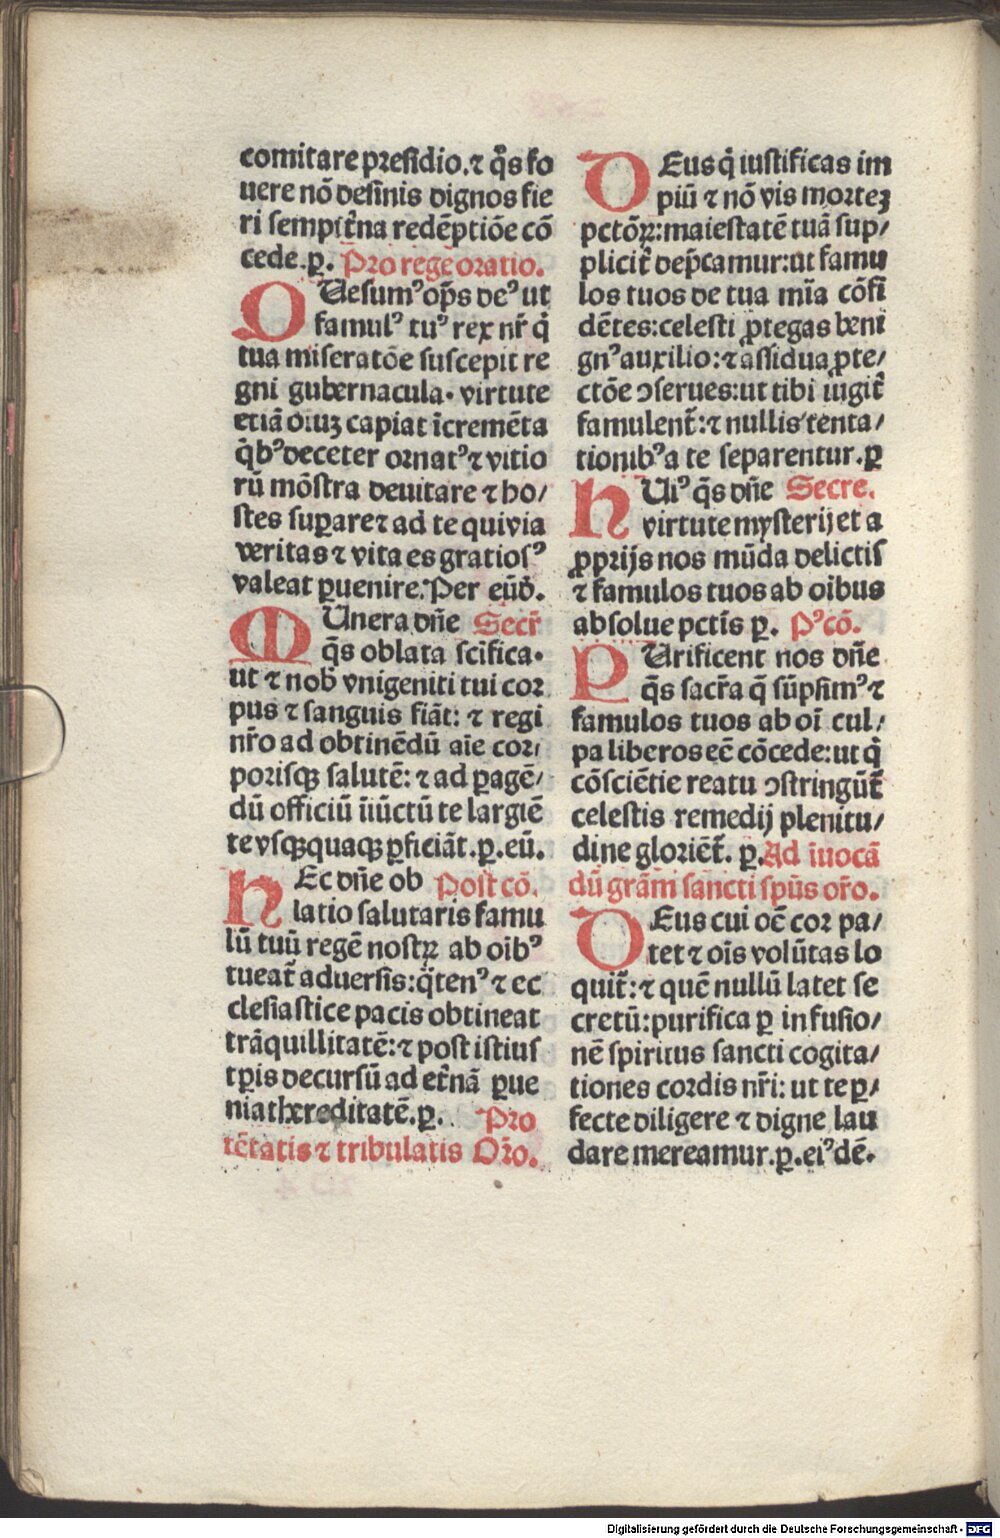 comitare presidio.⁊ q̄s fo
uere nō desinis dignos fie
ri sempit̄na redēptiōe cō
cede.ꝑ. Pro regē oratio.
QUesumꝰ op̄s deꝰ ut
famulꝰ tuꝰ rex nr̄ q̇
tua miseratōe suscepit re
gni gubernacula. virtute
etiā oīuꝫ capiat īcremēta
q̇bꝰ deceter ornatꝰ ⁊ vitio
rū mōstra deuitare ⁊ ho/
stes suꝑare ⁊ ad te qui via
veritas ⁊ vita es gratiosꝰ
valeat ꝑuenire. Per eūd̄.
MUnera dn̄e Secr̄
q̄s oblata scīfica.
ut ⁊ nob̄ vnigeniti tui cor
pus ⁊ sanguis fiāt: ⁊ regi
nr̄o ad obtinēdū aīe cor/
porisqꝫ salutē: ⁊ ad ꝑagē/
dū officiū īiūctū te largiē
te vsqꝫquaqꝫ ꝑficiāt.ꝑ.eū.
HEc dn̄e ob Post cō.
latio salutaris famu
lū tuū regē nostrꝝ ab oībꝰ
tueat̄ aduersis: q̄tenꝰ ⁊ ec
clesiastice pacis obtineat
trāquillitatē: ⁊ post istius
tꝑis decursū ad et̄nā ꝑue
niat hereditatē.ꝑ. Pro
tētatis ⁊ tribulatis Or̄o.
DEus q̇ iustificas im
piū ⁊ nō vis morteꝫ
pctōꝝ: maiestatē tuā sup/
plicit̄ dep̄camur: ut famu
los tuos de tua mīa cōfi
dētes: celesti ꝓtegas beni
gnꝰ auxilio: ⁊ assidua ꝓte/
ctōe ꝯserues: ut tibi iugit̄
famulent̄: ⁊ nullis tenta/
tionibꝰ a te separentur.ꝑ
HUiꝰ q̄s dn̄e Secre.
virtute mysterij et a
ꝓprijs nos mūda delictis
⁊ famulos tuos ab oībus
absolue pctīs ꝑ. Pꝰcō.
PUrificent nos dn̄e
q̄s sacr̄a q̄ sūpsimꝰ ⁊
famulos tuos ab oī cul/
pa liberos eē cōcede: ut q̇
cōsciētie reatu ꝯstringūt̄
celestis remedij plenitu/
dine gloriēt̄. ꝑ. Ad īuocā
dū grām sancti sp̄us or̄o.
DEus cui oē cor pa/
tet ⁊ oīs volūtas lo
quit̄: ⁊ quē nullū latet se
cretū: purifica ꝑ infusio/
nē spiritus sancti cogita/
tiones cordis nr̄i: ut te ꝑ/
fecte diligere ⁊ digne lau
dare mereamur.ꝑ.eiꝰdē.
Digitalisierung gefördert durch die Deutsche Forschungsgemeinschaft - DFG